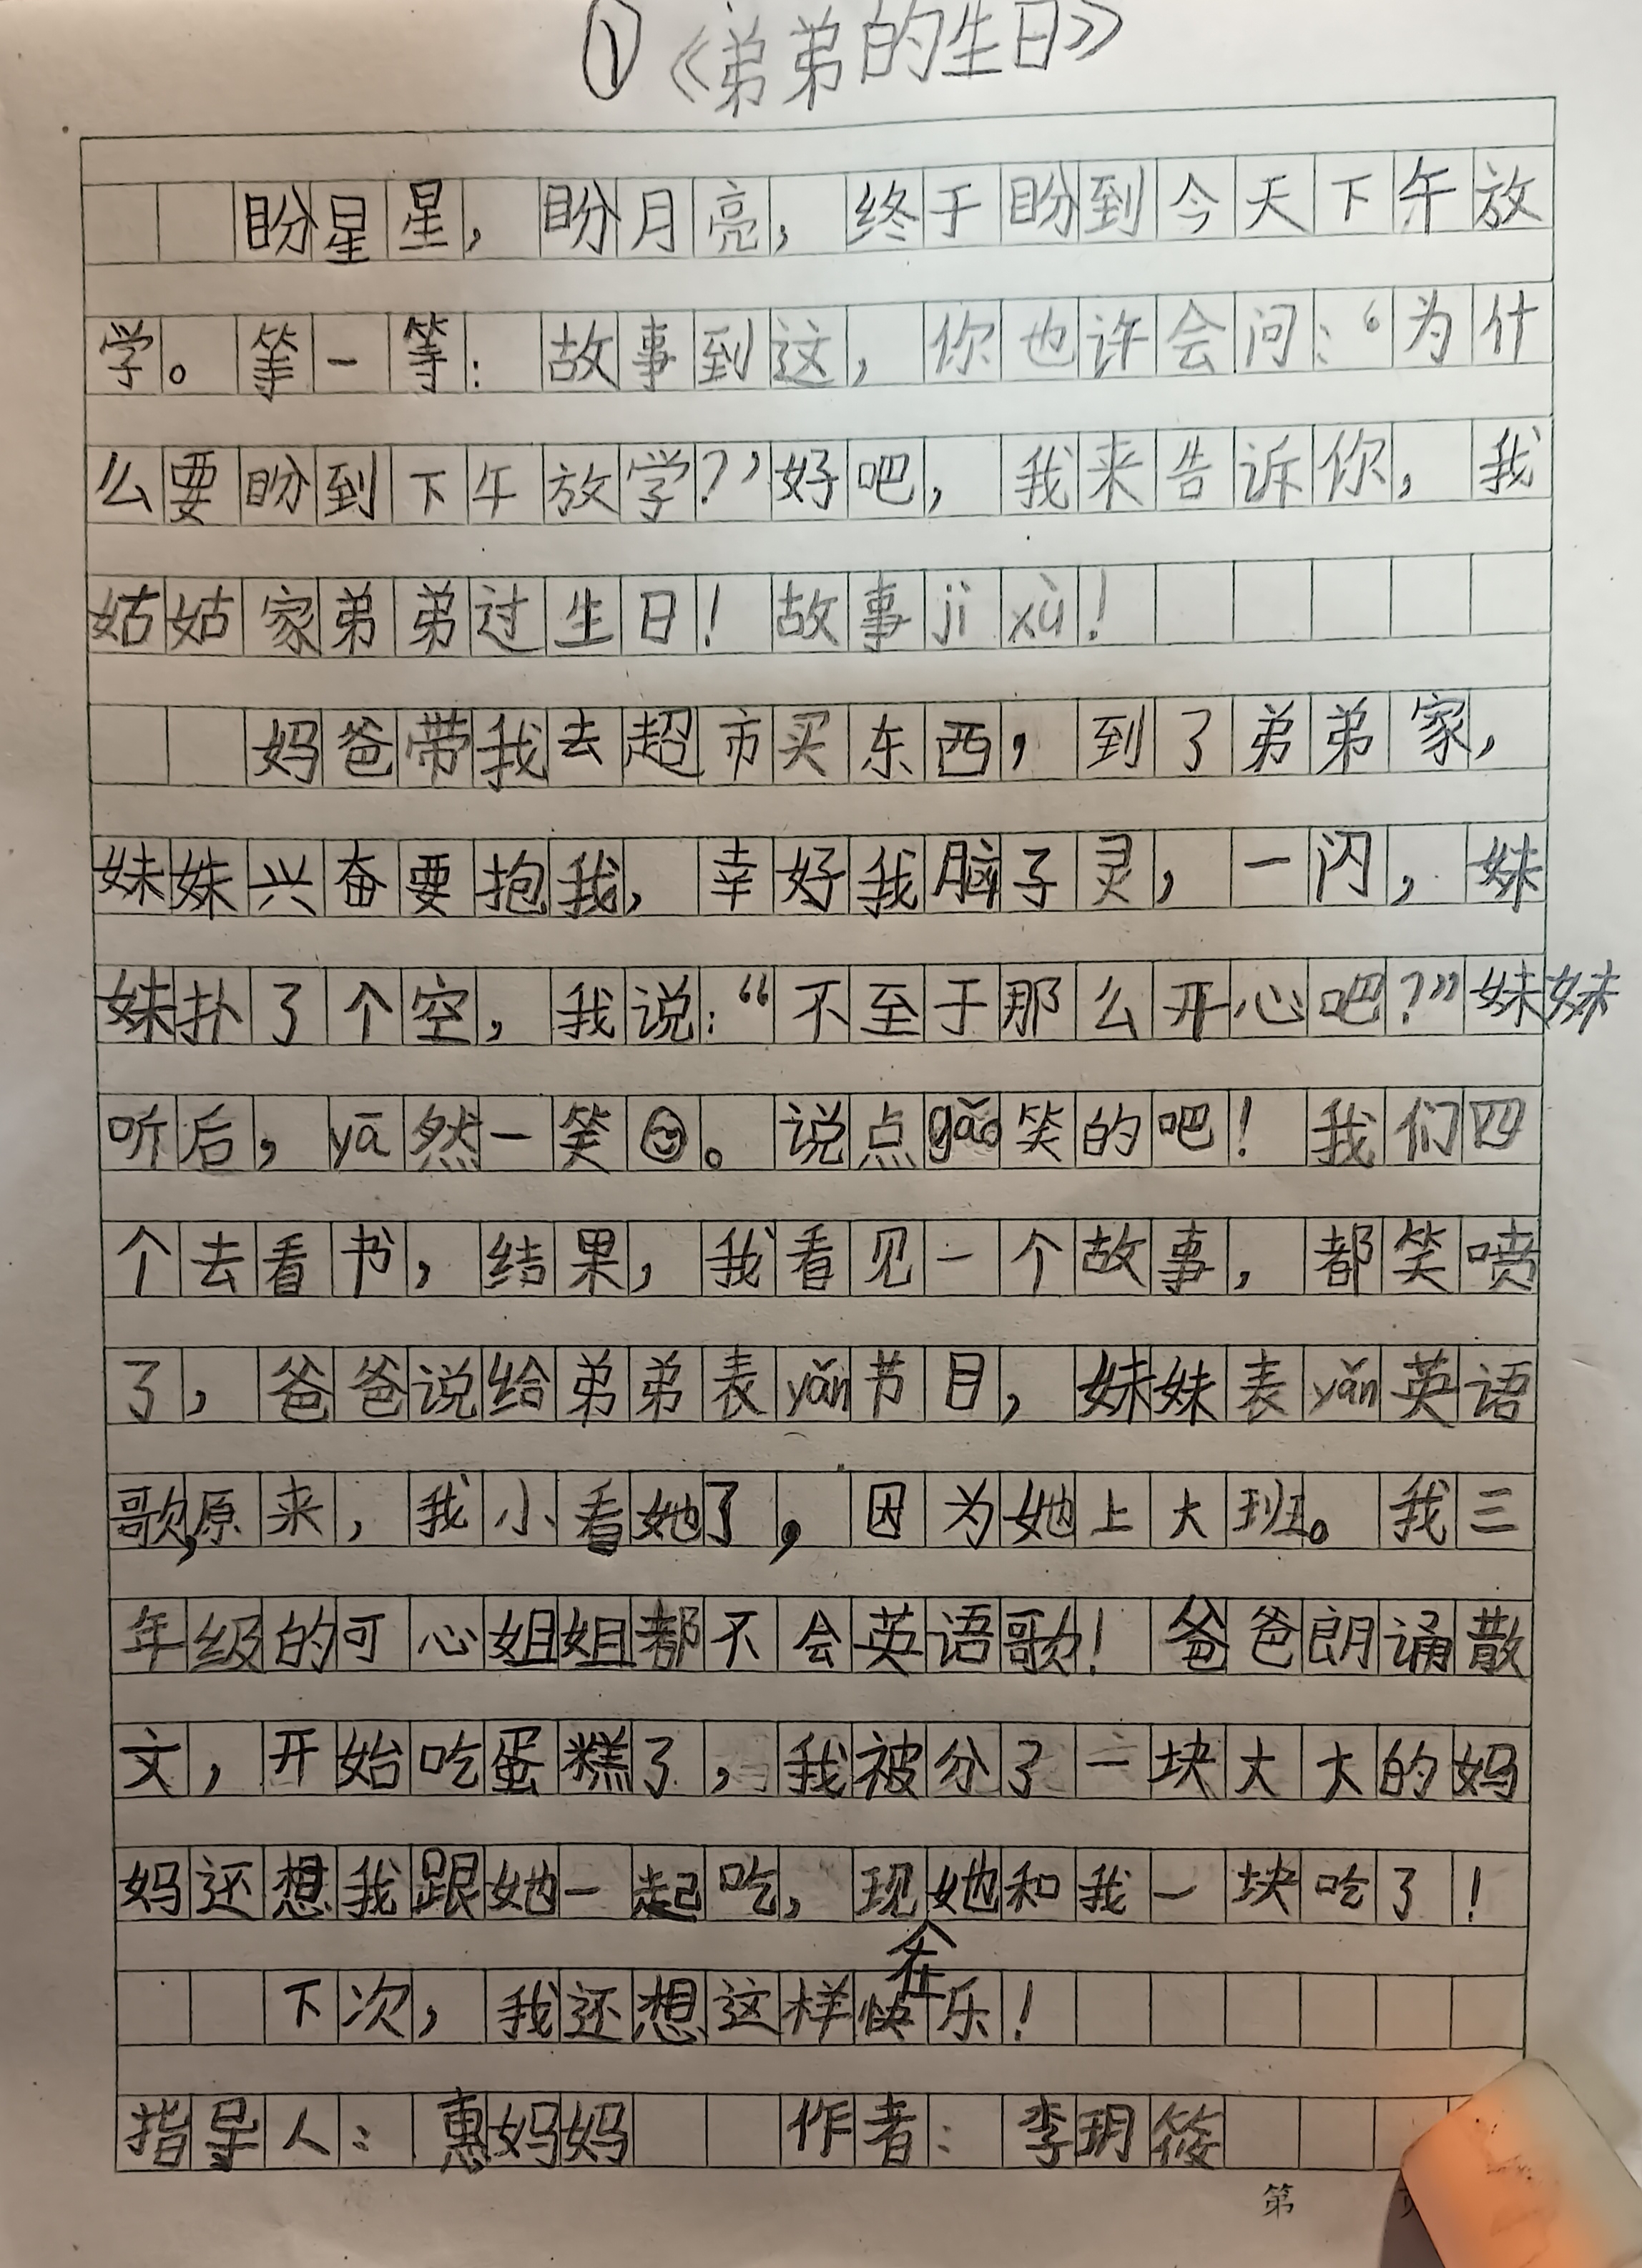 ①《弟弟的生日》
盼星星，盼月亮，终于盼到今天下午放
学。等一等：故事到这，你也许会问：‘为什
么要盼到下午放学？’好吧，我来告诉你，我
姑姑家弟弟过生日！故事jì xù！
妈爸带我去超市买东西，到了弟弟家，
妹妹兴奋要抱我，幸好我脑子灵，一闪，妹
妹扑了个空，我说：“不至于那么开心吧？”妹妹
听后，yā然一笑。说点gǎo笑的吧！我们四
个去看书，结果，我看见一个故事，都笑喷
了，爸爸说给弟弟表yǎn节目，妹妹表yǎn英语
歌，原来，我小看她了，因为她上大班。我三
年级的可心姐姐都不会英语歌！爸爸朗诵散
文，开始吃蛋糕了，我被分了一块大大的妈
妈还想我跟她一起吃，现在她和我一块吃了！
下次，我还想这样快乐！
指导人：惠妈妈 作者：李玥筱
第 页